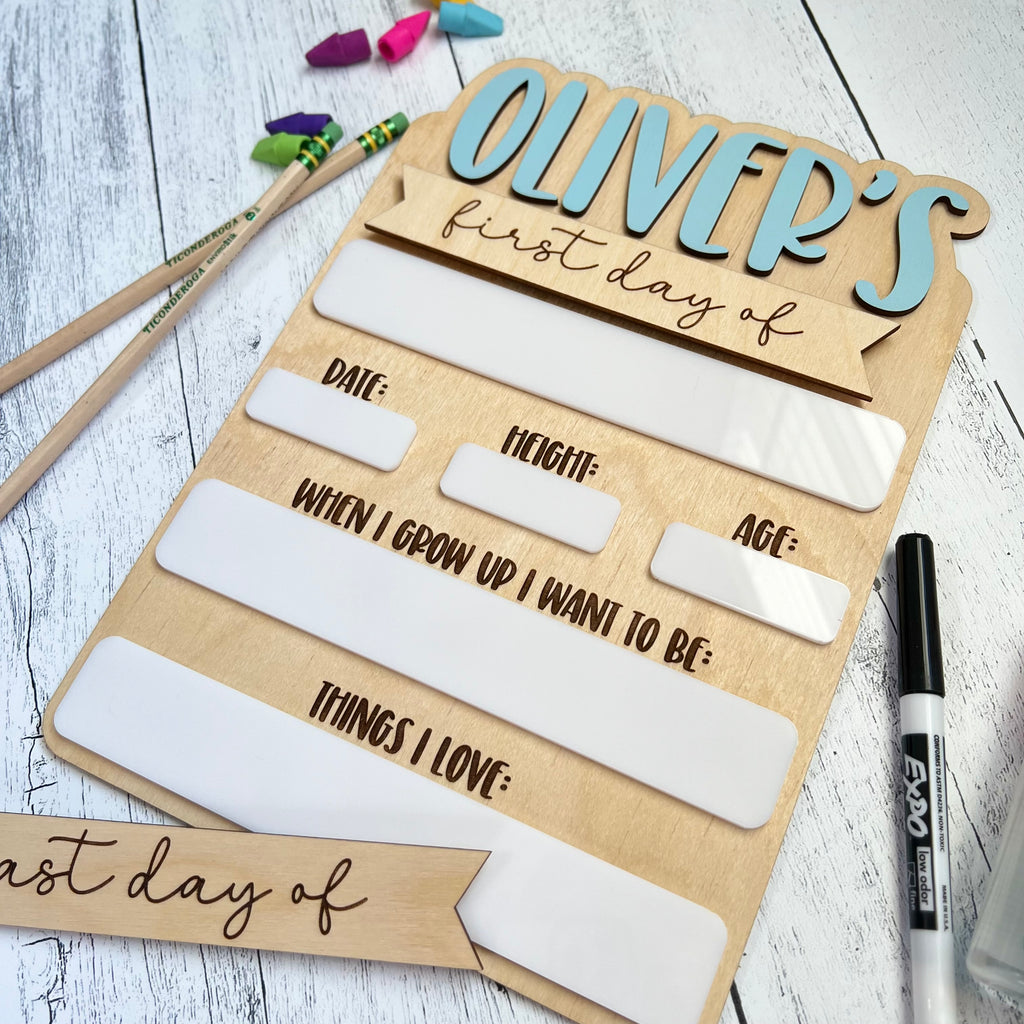 OLIVER'S
first day of
DATE:
HEIGHT:
AGE:
WHEN I GROW UP I WANT TO BE:
THINGS I LOVE:
ast day of
TICONDEROGA
TICONDEROGA
EXPO
low odor
fine
CONFORMS TO ASTM D4236, NON-TOXIC
MADE IN U.S.A.